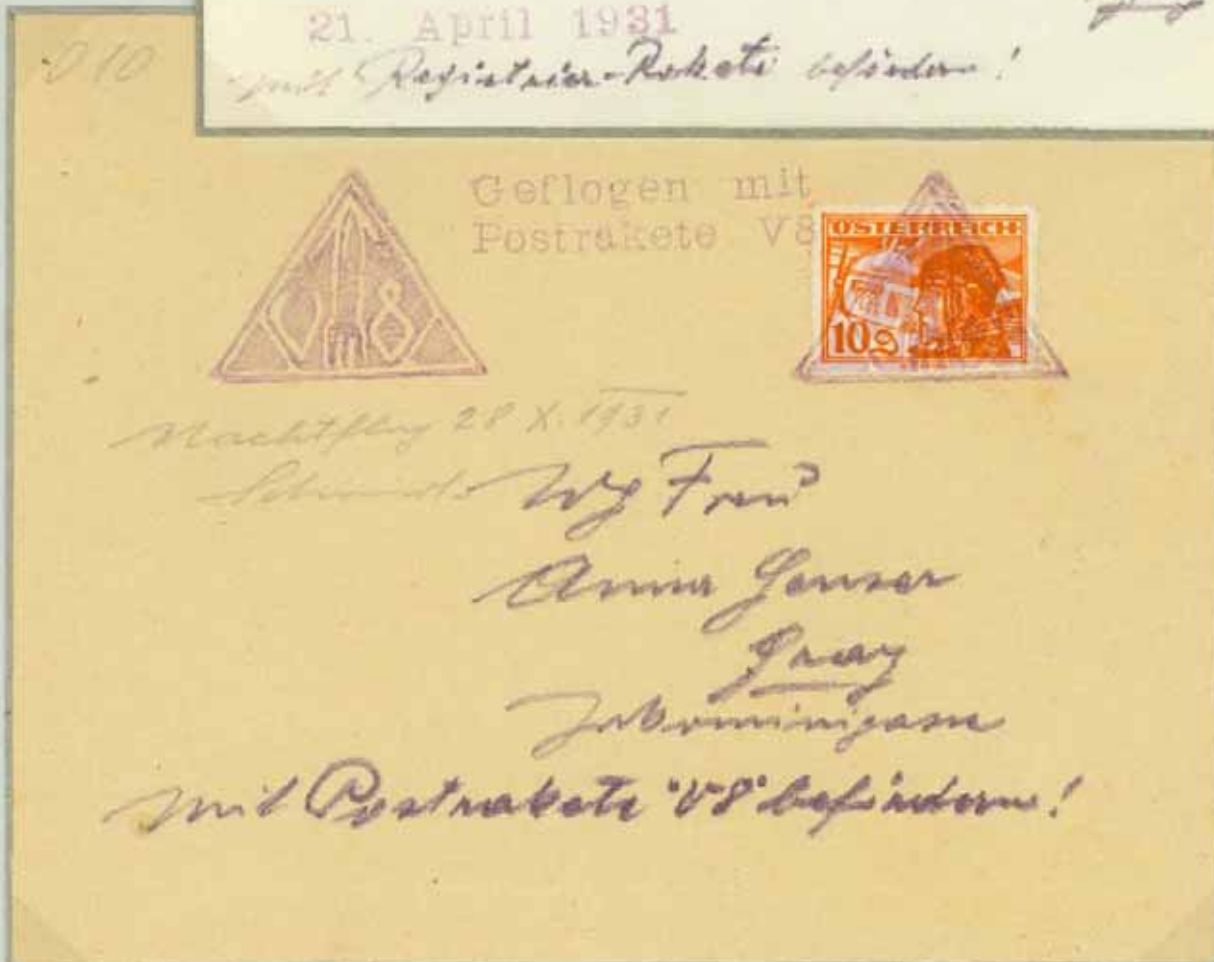 21. April 1931
mit Registrier-Rakete befördern!
010
Geflogen mit
Postrakete V8
V 8
ÖSTERREICH
10
Nachtflug 28 X. 1931
Frau
Anna
Graz
Jakominigasse
Mit Postrakete "V8" befördern!